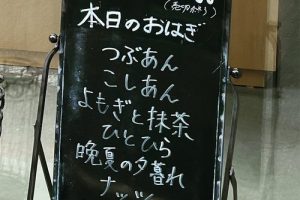 本日のおはぎ
つぶあん
こしあん
よもぎと抹茶
ひとひら
晩夏の夕暮れ
ナッツ